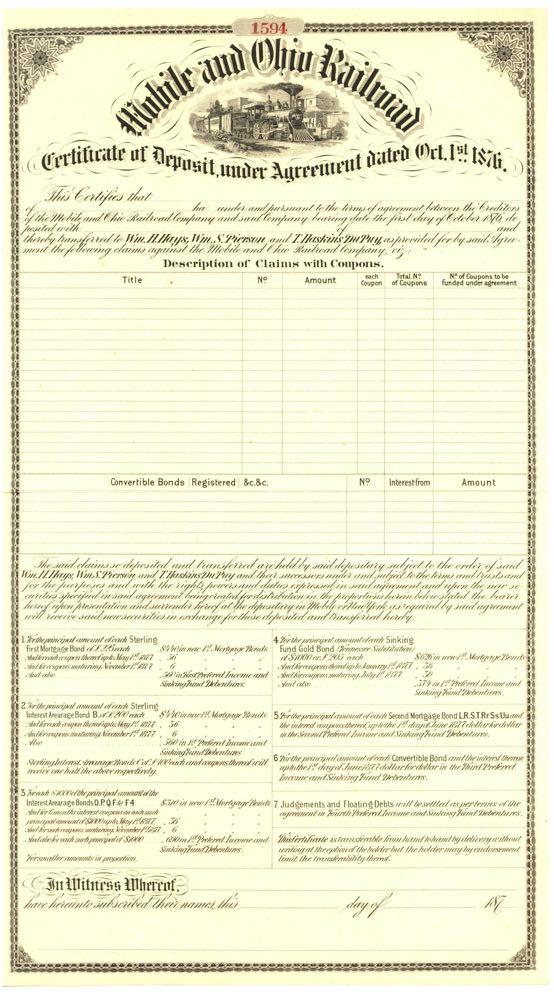 1594
Mobile and Ohio Railroad
Certificate of Deposit, under Agreement dated Oct. 1st. 1876.
This Certifies that
of ha under and pursuant to the terms of agreement between the Creditors
of the Mobile and Ohio Railroad Company and said Company bearing date the first day of October 1876, de
posited with of and
thereby transferred to Wm. H. Hays, Wm. S. Pierson and T. Haskins Du Puy, as provided for by said Agree-
ment the following claims against the Mobile and Ohio Railroad Company, viz:
Description of Claims with Coupons.
Title No Amount each Coupon Total No of Coupons No of Coupons to be funded under agreement
Convertible Bonds Registered &c.&c. No Interest from Amount
The said claims so deposited and transferred are held by said depositary subject to the order of said
Wm. H. Hays, Wm. S. Pierson and T. Haskins Du Puy and their successors under and subject to the terms and trusts and
for the purposes and with the rights, powers and duties expressed in said agreement and upon the new se
curities specified in said agreement being ready for distribution in the proportions herein below stated the bearer
hereof upon presentation and surrender hereof at the depositary in Mobile or New York as required by said agreement
will receive said new securities in exchange for those deposited and transferred hereby.
1 For the principal amount of each Sterling
First Mortgage Bond of £ each $440 in new 1st Mortgage Bonds
And for each coupon thereof up to May 1st 1877 . 56 " "
And for coupons maturing November 1st 1877 6 " "
And also . 560 in First Preferred Income and
Sinking Fund Debentures.
2 For the principal amount of each Sterling
Interest Arearage Bond B. of £ 200 each $440 in new 1st Mortgage Bonds
And for each coupon thereof up to May 1st 1877 . 56 " "
And for coupons maturing November 1st 1877 6 " "
Also . 560 in 1st Preferred Income and
Sinking Fund Debentures
Sterling Interest Arearage Bonds C of £ 100 each and coupons thereof will
receive one half the above respectively.
3 For each $1000 of the principal amount of the
Interest Arearage Bonds O.P.Q.F & F 4 $310 in new 1st Mortgage Bonds
And for 6 months interest coupons on each such
principal amount of $1000 up to May 1st 1877 . 56 " "
And for such coupons maturing November 1st 1877 . 6 " "
And also for each such principal of $1000 . 690 in 1st Preferred Income and
Sinking Fund Debentures.
For smaller amounts in proportion.
4 For the principal amount of each Sinking
Fund Gold Bond (Tennessee Substitution)
of $1000 or £ 205 each $626 in new 1st Mortgage Bonds
And for the coupons thereof up to January 1st 1877 . 56 " "
And for the coupons maturing July 1st 1877 . 50 " "
And also . 374 in 1st Preferred Income and
Sinking Fund Debentures.
5 For the principal amount of each Second Mortgage Bond L R.S.T. Rr Ss Uu and
the interest coupons thereof, up to the 1st day of June 1877 dollar for dollar
in the Second Preferred Income and Sinking Fund Debentures.
6 For the principal amount of each Convertible Bond and the interest thereon
up to the 1st day of June 1877 dollar for dollar in the Third Preferred
Income and Sinking Fund Debentures.
7 Judgements and Floating Debts will be settled as per terms of the
agreement in Fourth Preferred Income and Sinking Fund Debentures.
This Certificate is transferable from hand to hand by delivery without
writing at the option of the holder but the holder may by endorsement
limit the transferability thereof.
In Witness Whereof,
have hereunto subscribed their names, this day of 187